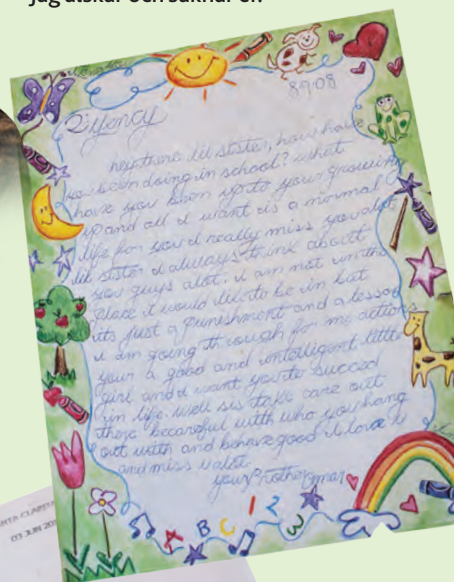 Jag älskar och saknar er.
8-9-08
Yency
hey there lil sister, how have
you been doing in school? what
have you been up to your growing
up and all I want is a normal
life for you I really miss you alot
lil sister I always think about
you guys alot. I am not in the
place I would like to be in but
its just a punishment and a lesson
I am going through for my actions
your a good and intelligent little
girl and I want you to succed
in life well sis take care out
there becareful with who you hang
out with and behave good I love u
and miss u alot
your Brother
A B C 1 2 3
03 JUN 20